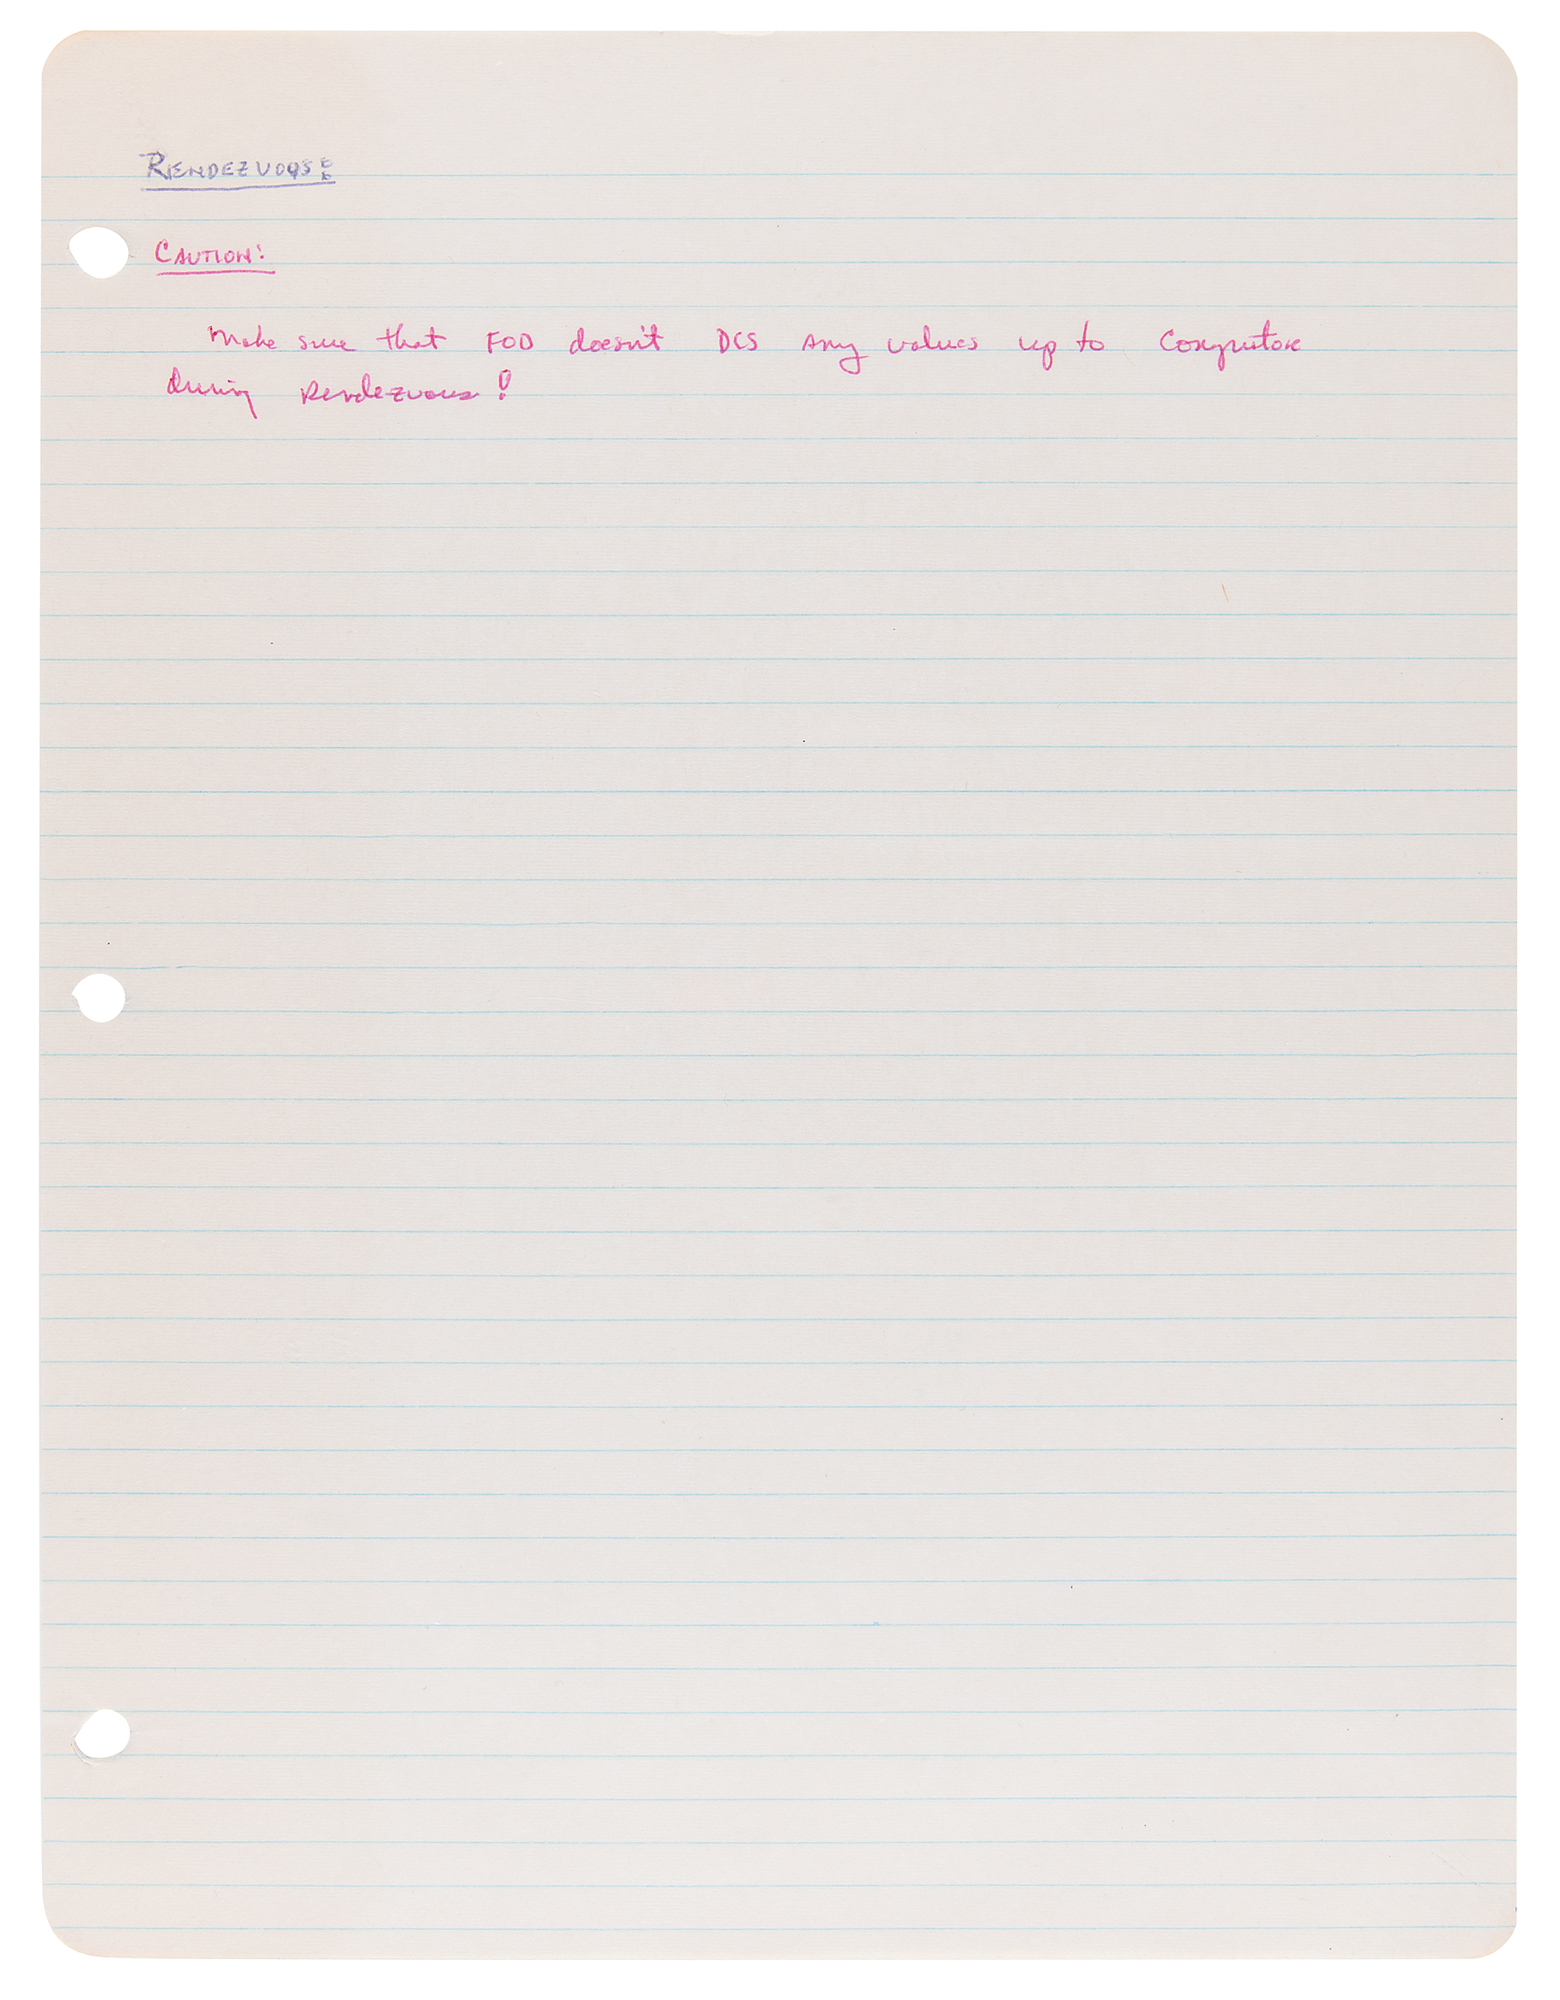 RENDEZVOUS:
CAUTION:
Make sure that FOD doesn't DCS any values up to Computer
during Rendezvous!